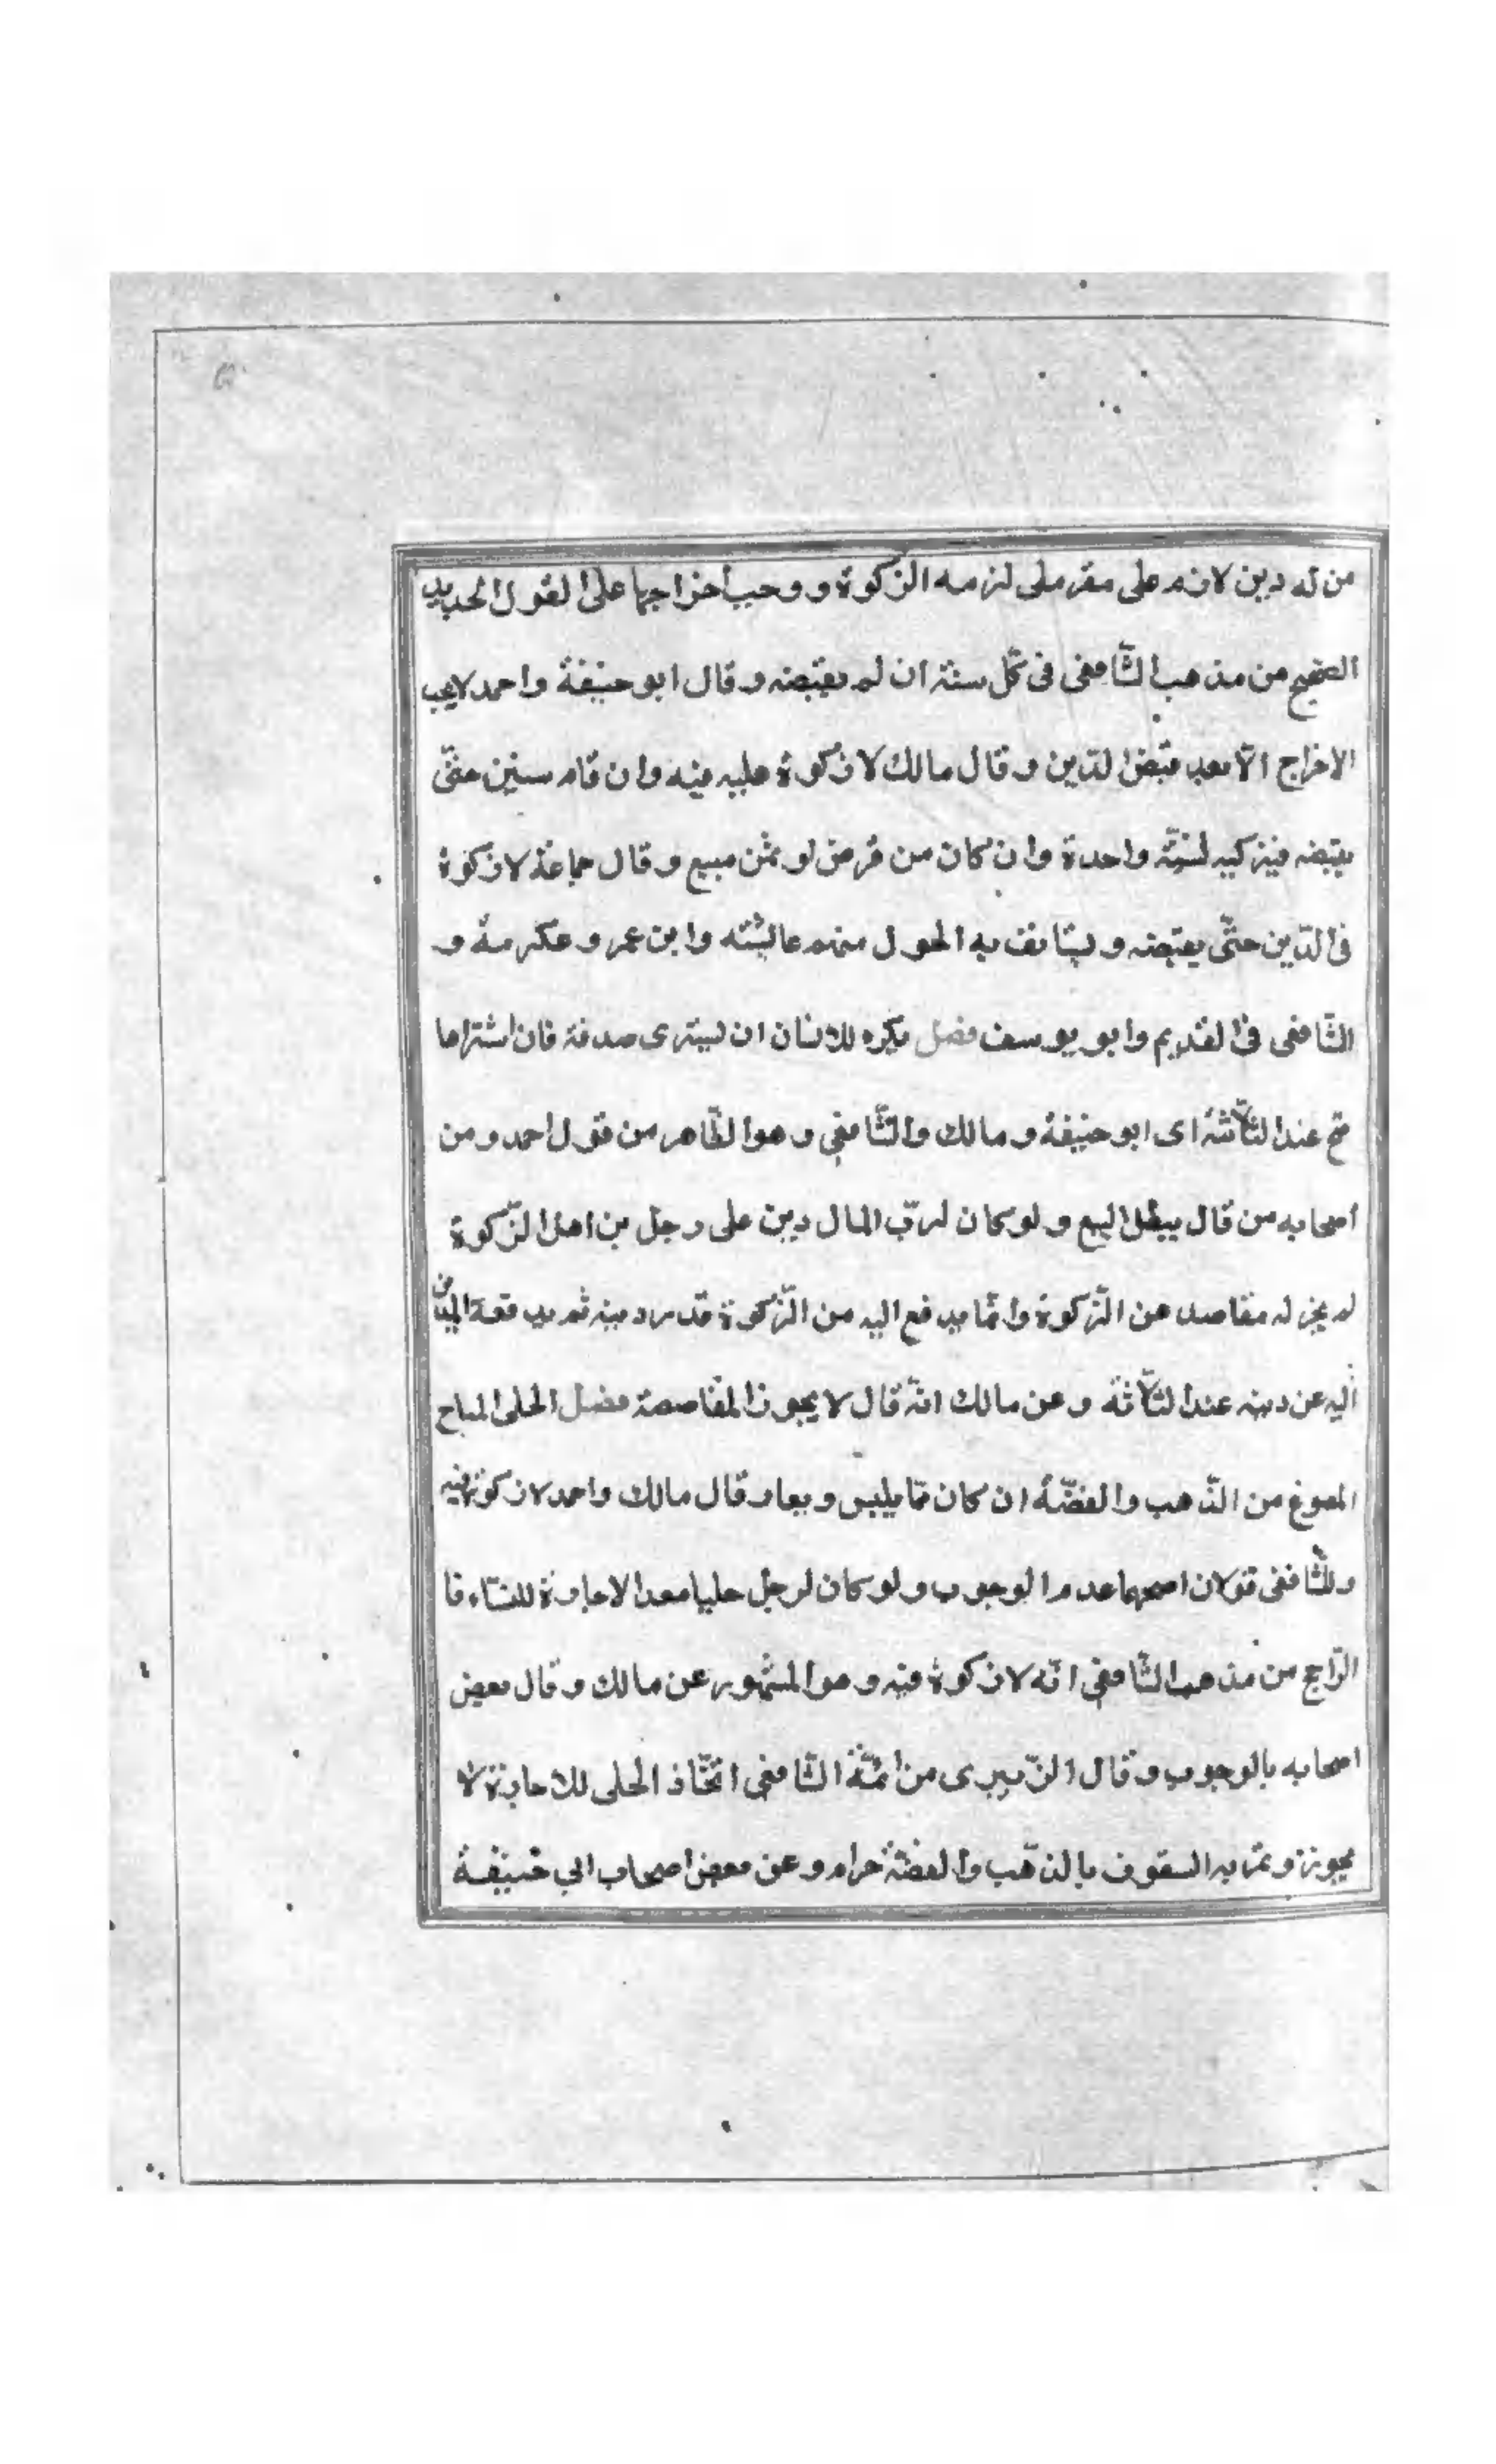 من له دين لازم على مقر ملى لزمه الزكوة ووجب اخراجها على القول الجديد
الصحيح من مذهب الشّافعى فى كلّ سنة ان لم يقبضه وقال ابو حنيفة واحمد لايجب
الاخراج الّا بعد قبض الدّين وقال مالك لا زكوة عليه فيه وان قام سنين حتّى
يقبضه فيزكيه لسنة واحدة وان كان من قرض او ثمن مبيع وقال جماعة لا زكوة
فى الدّين حتّى يقبضه ويستانف به الحول منهم عايشة وابن عمر وعكرمة و
الشّافعى فى القديم وابو يوسف فصل يكره للانسان ان يشترى صدقة فان اشتراها
صح عند الثّلاثة اى ابو حنيفة ومالك والشّافعى وهو الظّاهر من قول احمد ومن
اصحابه من قال يبطل البيع ولو كان لربّ المال دين على رجل من اهل الزّكوة
لم يجز له مقاصد عن الزّكوة وانّما يدفع اليه من الزّكوة قدر دينه ثم يدفعه
اليه عن دينه عند الثّلاثة وعن مالك انّه قال لا يجوز المقاصصة فصل الحلى المباح
المصوغ من الذّهب والفضّة ان كان ممّا يلبس ويعار قال مالك واحمد لا زكوة فيه
وللشّافعى قولان اصحهما عدم الوجوب ولو كان لرجل حليا معدا لاعارة للنسّاء فا
الرّاجح من مذهب الشّافعى انّه لا زكوة فيه وهو المشهور عن مالك وقال بعض
اصحابه بالوجوب وقال الزّبيرى من ائمّة الشّافعى اتّخاذ الحلى للاجارة لا
يجوز وتمويه السقوف بالذّهب والفضّة حرام وعن بعض اصحاب ابي حنيفة